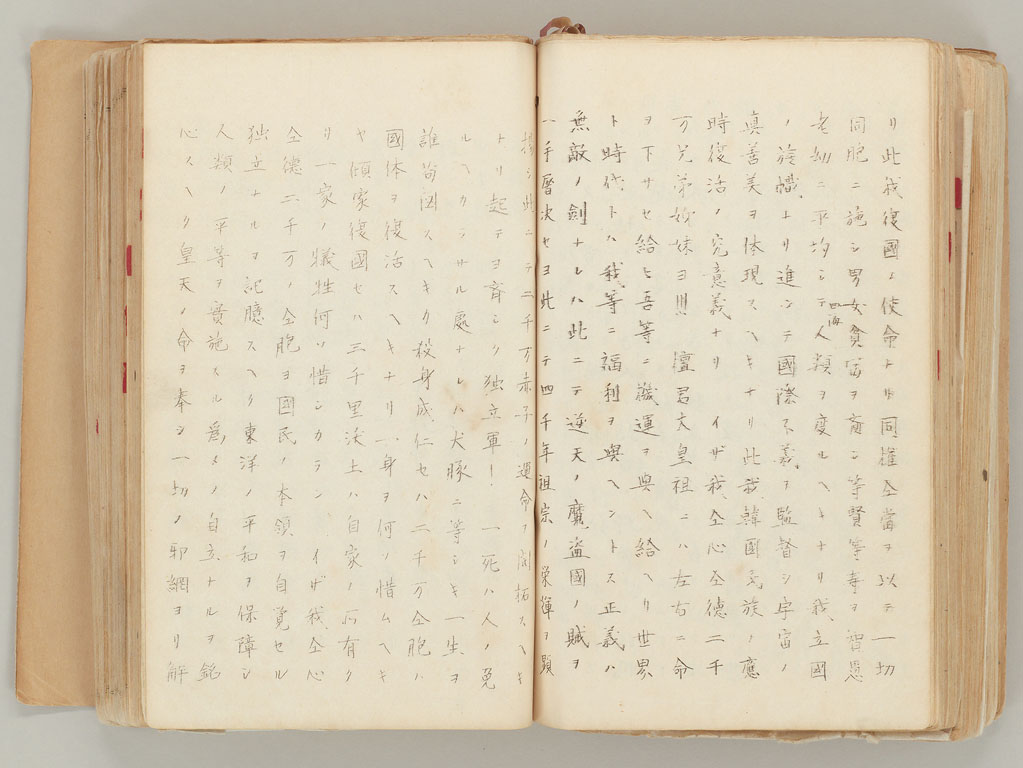 リ此我復國ノ使命ト同權仝當ヲ以テ一切
同胞ニ施シ男女貧富ヲ斎シ等賢等壽ヲ智愚
四海
老幼ニ平均シテ人類ヲ度ルヘキナリ我立國
ノ旗幟ナリ進ンテ國際不義ヲ監督シ宇宙ノ
眞善美ヲ体現スヘキナリ此我韓國民族ノ應
時復活ノ究意義ナリ イザ我仝心仝德二千
万兄弟姉妹ヨ!!! 檀君大皇祖ニハ左右ニ命
ヲ下サセ給ヒ吾等ニ機運ヲ與ヘ給ヘリ世界
ト時代トハ我等ニ福利ヲ與ヘントス正義ハ
無敵ノ劍ナレハ此ニテ逆天ノ魔盗國ノ賊ヲ
一手屠决セヨ此ニテ四千年祖宗ノ榮輝ヲ顯
揚シ此ニテ二千万赤子ノ運命ヲ開拓スヘキ
トリ起テヨ齊シク独立軍! 一死ハ人ノ免
ルヘカラサル處ナレハ犬豚ニ等シキ一生ヲ
誰苟図スヘキカ殺身成仁セハ二千万仝胞ハ
國体ヲ復活スヘキナリ 一身ヲ何ノ惜ムヘキ
ヤ傾家復國セハ三千里沃土ハ自家ノ所有ク
リ一家ノ犠牲何ソ惜シカラン イザ我仝心
仝德二千万ノ仝胞ヨ國民ノ本領ヲ自覚セル
独立ナルヲ記臆スヘク東洋ノ平和ヲ保障シ
人類ノ平等ヲ實施スル為メノ自立ナルヲ銘
心スヘク皇天ノ命ヲ奉シ一切ノ邪網ヨリ解